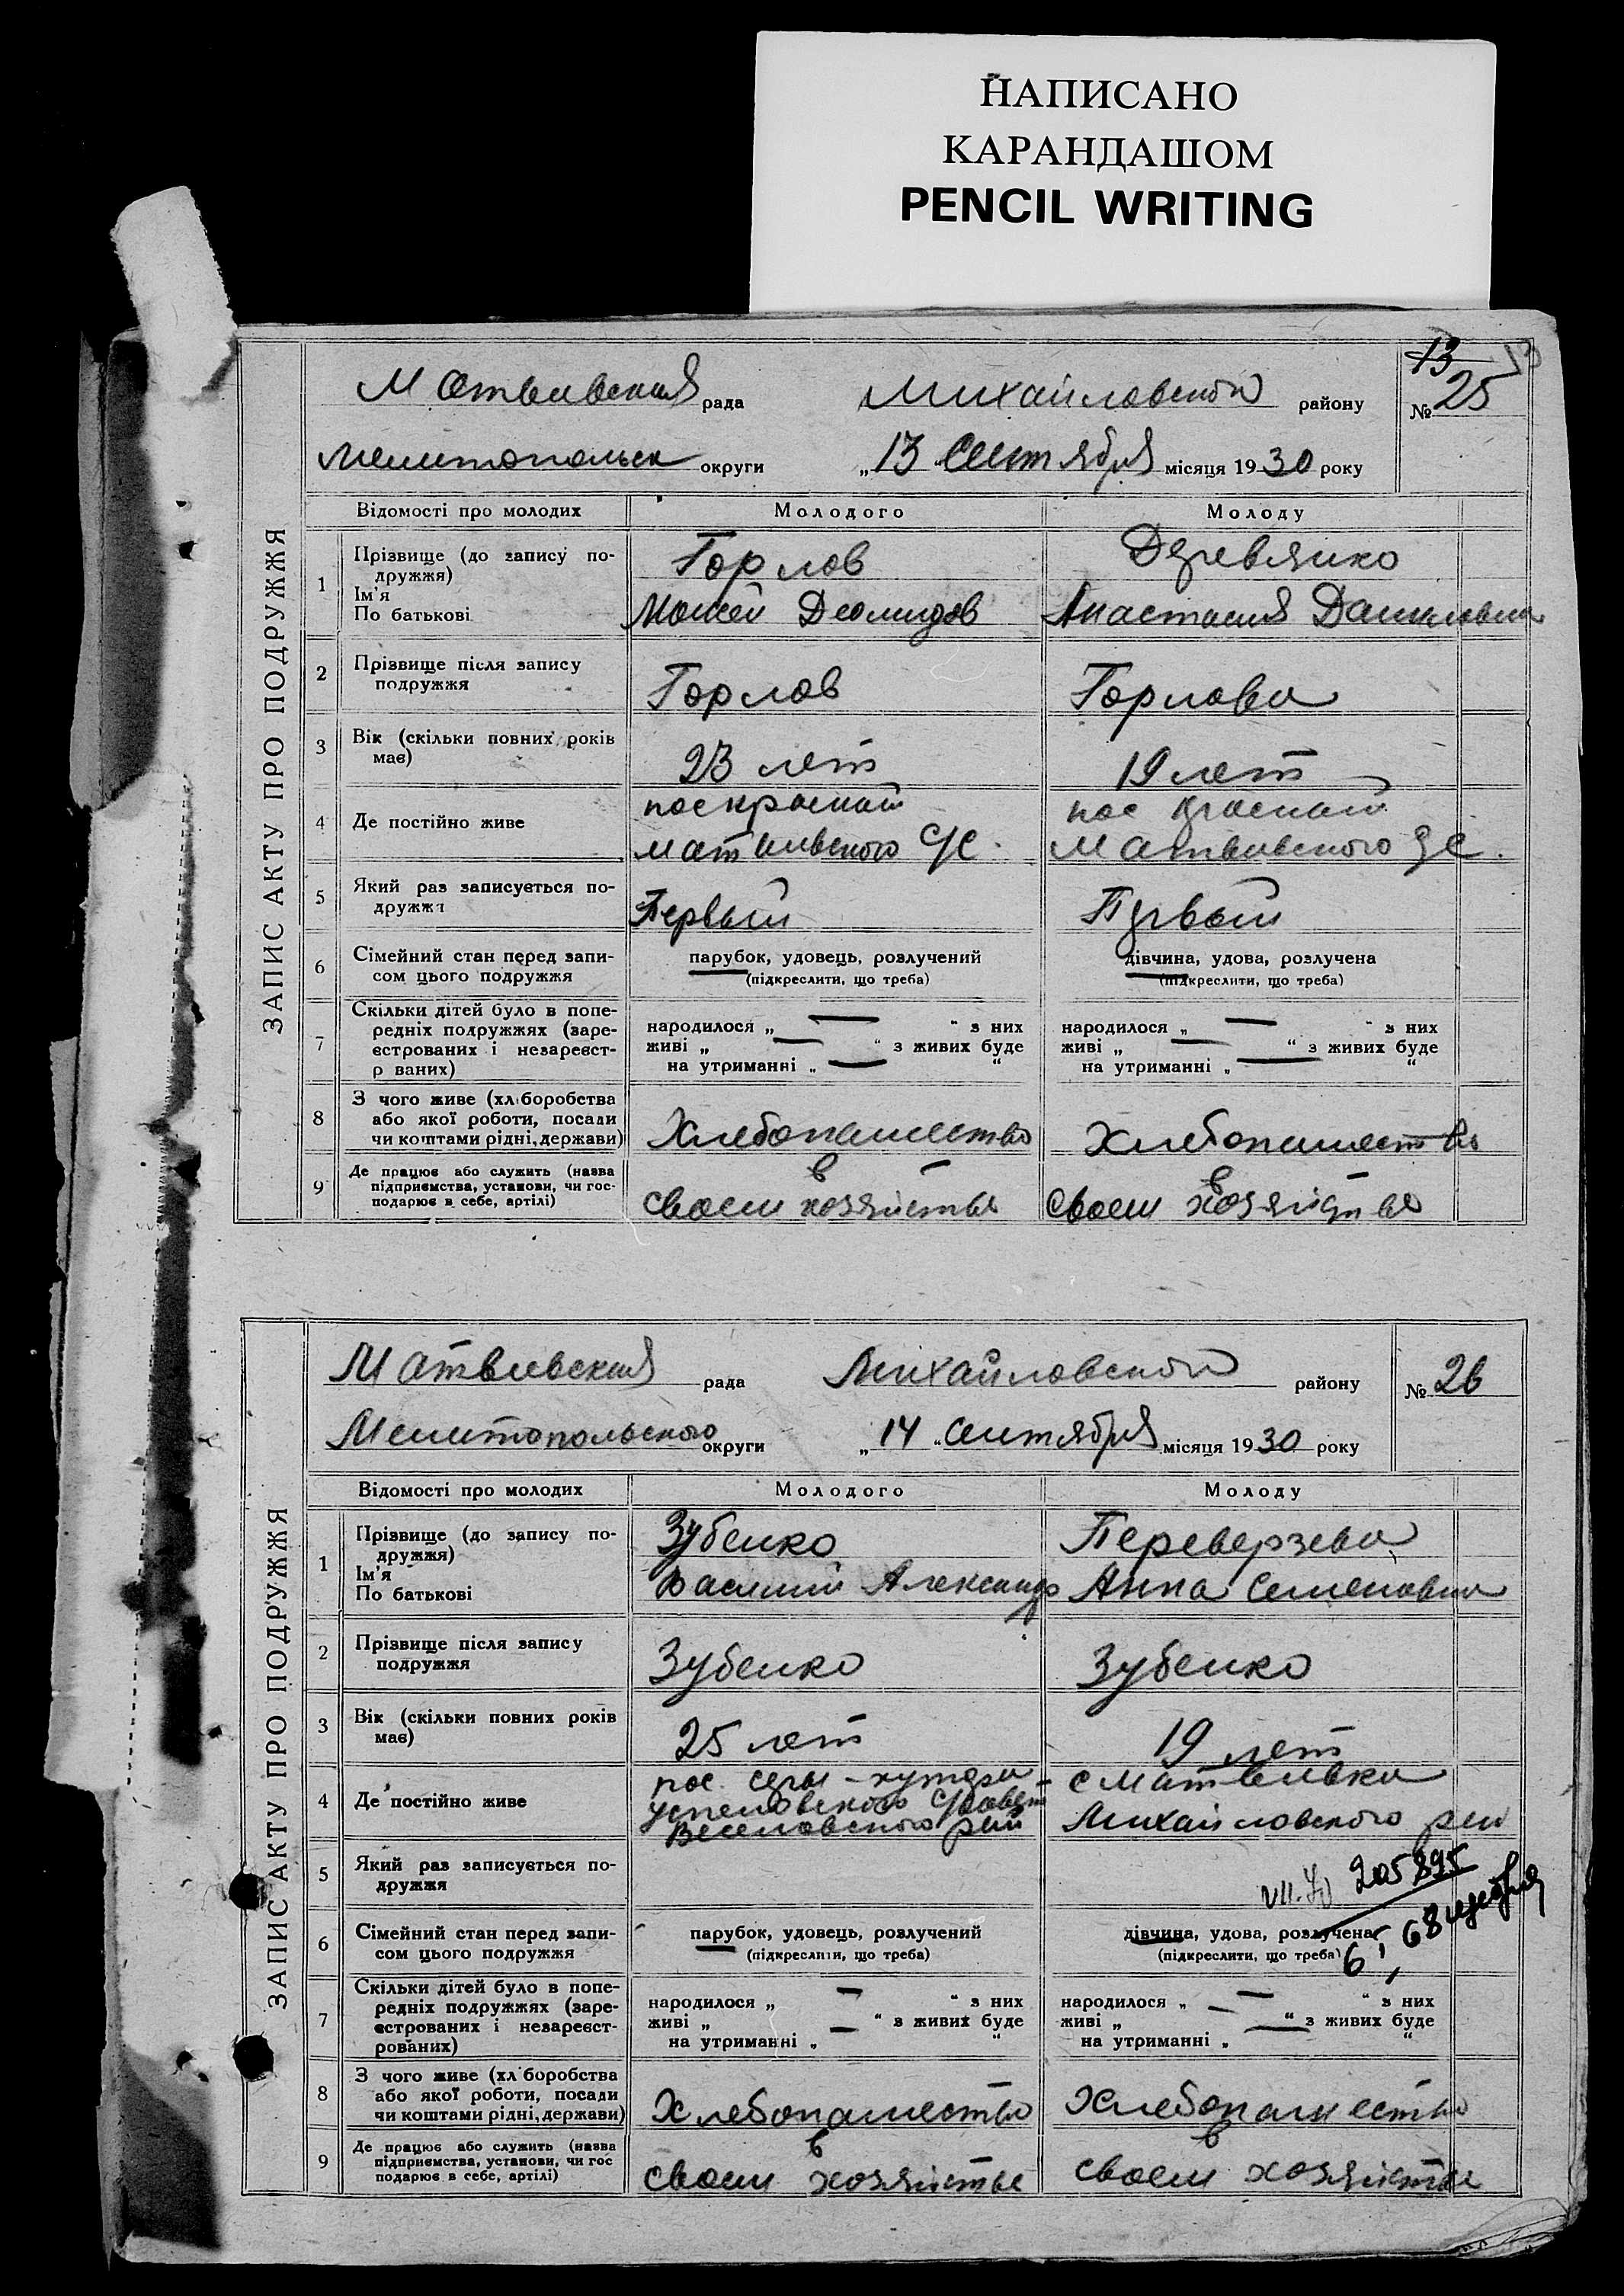 НАПИСАНО
КАРАНДАШОМ
PENCIL WRITING
13 13
Матвивская рада Михайловской району № 25
Мелитопольск округи „13 Сентября місяця 1930 року
ЗАПИС АКТУ ПРО ПОДРУЖЖЯ
Відомості про молодих Молодого Молоду
1 Прізвище (до запису подружжя) Ім'я По батькові
Горлов Деревянко
Мокей Деомидов Анастасия Даниловна
2 Прізвище після запису подружжя Горлов Горлова
3 Вік (скільки повних років має) 23 лет 19 лет
4 Де постійно живе
пос красный пос красный
матвивского с/с. Матвивского с/с.
5 Який раз записується подружжя Первый Первый
6 Сімейний стан перед записом цього подружжя парубок, удовець, розлучений дівчина, удова, розлучена
(підкреслити, що треба) (підкреслити, що треба)
7 Скільки дітей було в попередніх подружжях (зареєстрованих і незареєстр ваних)
народилося „ — “ з них народилося „ — “ з них
живі „ — “ з живих буде живі „ — “ з живих буде
на утриманні „ — “ на утриманні „ — “
8 З чого живе (хліборобства або якої роботи, посади чи коштами рідні, держави) Хлебопашество Хлебопашество
9 Де працює або служить (назва підприємства, установи, чи господарює в себе, артілі)
в в
своем хозяйстве своем хозяйстве
Матвивская рада Михайловской району № 26
Мелитопольского округи „14 “ сентября місяця 1930 року
ЗАПИС АКТУ ПРО ПОДРУЖЖЯ
Відомості про молодих Молодого Молоду
1 Прізвище (до запису подружжя) Ім'я По батькові
Зубенко Переверзева
Василий Александр Анна Семеновна
2 Прізвище після запису подружжя Зубенко Зубенко
3 Вік (скільки повних років має) 25 лет 19 лет
4 Де постійно живе
пос. хутора с Матвивка
успеновского
Веселовского рай Михайловского рай
5 Який раз записується подружжя
VII 205895
6 Сімейний стан перед записом цього подружжя парубок, удовець, розлучений дівчина, удова, розлучена
(підкреслити, що треба) (підкреслити, що треба)
7 Скільки дітей було в попередніх подружжях (зареєстрованих і незареєстрованих)
народилося „ — “ з них народилося „ — “ з них
живі „ “ з живих буде живі „ “ з живих буде
на утриманні „ — “ на утриманні „ — “
8 З чого живе (хл боробства або якої роботи, посади чи коштами рідні, держави) Хлебопашество Хлебопашество
9 Де працює або служить (назва підприємства, установи, чи гос подарює в себе, артілі)
в в
своем хозяйстве своем хозяйстве